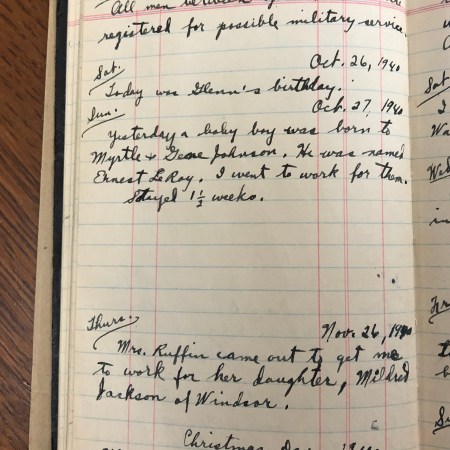 All men between
registered for possible military service.
Sat. Oct. 26, 1940
Today was Glenn's birthday.
Sun. Oct. 27, 1940
Yesterday a baby boy was born to
Myrtle & Gene Johnson. He was named
Ernest LeRoy. I went to work for them.
Stayed 1 1/2 weeks.
Thurs. Nov. 26, 1940
Mrs. Ruffin came out to get me
to work for her daughter, Mildred
Jackson of Windsor.
Christmas Day 1940
Sat
I
Wa
Wed
in
Fr